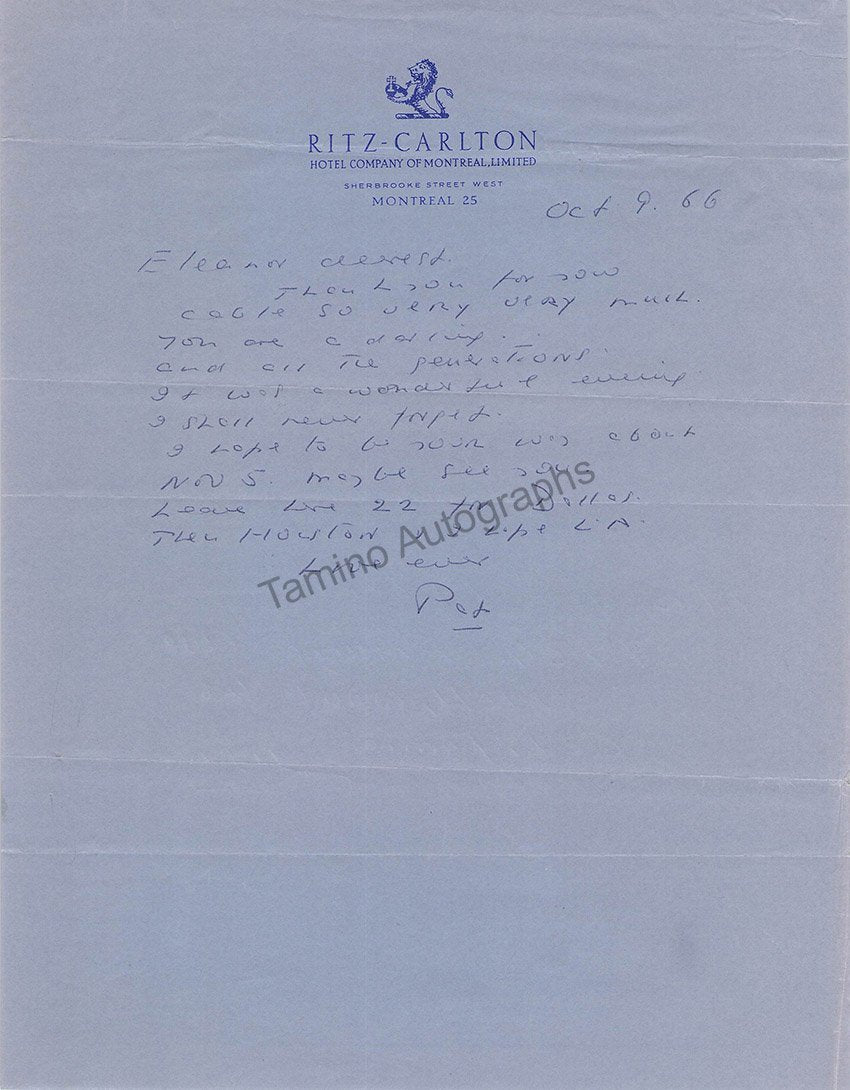 RITZ-CARLTON
HOTEL COMPANY OF MONTREAL, LIMITED
SHERBROOKE STREET WEST
MONTREAL 25
Oct 9. 66
Eleanor dearest.
Thank you for your
cable so very very much.
You are a darling.
and all the generations.
It was a wonderful evening
I shall never forget.
I hope to be your way about
Nov 5. maybe see you
Leave here 22 for Dallas.
Then Houston L.A.
Love ever
Pat
Tamino Autographs